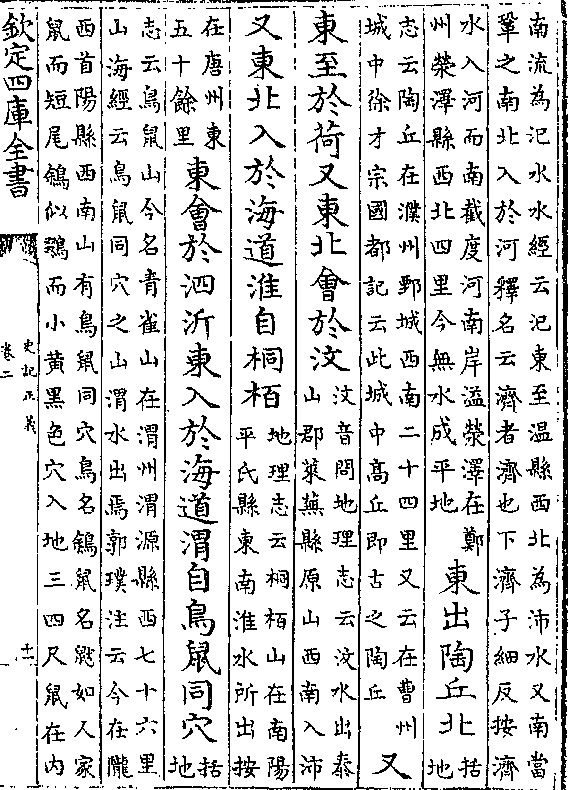 南流為汜水水經云汜東至温縣西北為沛水又南當
鞏之南北入於河釋名云濟者濟也下濟子細反按濟
水入河而南截度河南岸溢滎澤在鄭
州滎澤縣西北四里今無水成平地
東出陶丘北
括地
志云陶丘在濮州鄄城西南二十四里又云在曹州
城中徐才宗國都記云此城中高丘即古之陶丘
又
東至於荷又東北會於汶
汶音問地理志云汶水出泰
山郡萊蕪縣原山西南入沛
又東北入於海道淮自桐栢
地理志云桐栢山在南陽
平氏縣東南淮水所出按
在唐州東
五十餘里
東會於泗沂東入於海道渭自鳥鼠同穴
括地
志云鳥鼠山今名青雀山在渭州渭源縣西七十六里
山海經云鳥鼠同穴之山渭水出焉郭璞注云今在隴
西首陽縣西南山有鳥鼠同穴鳥名鵌鼠名鼵如人家
鼠而短尾鵌似鵽而小黃黑色穴入地三四尺鼠在內
欽定四庫全書
史記正義
卷二
十一